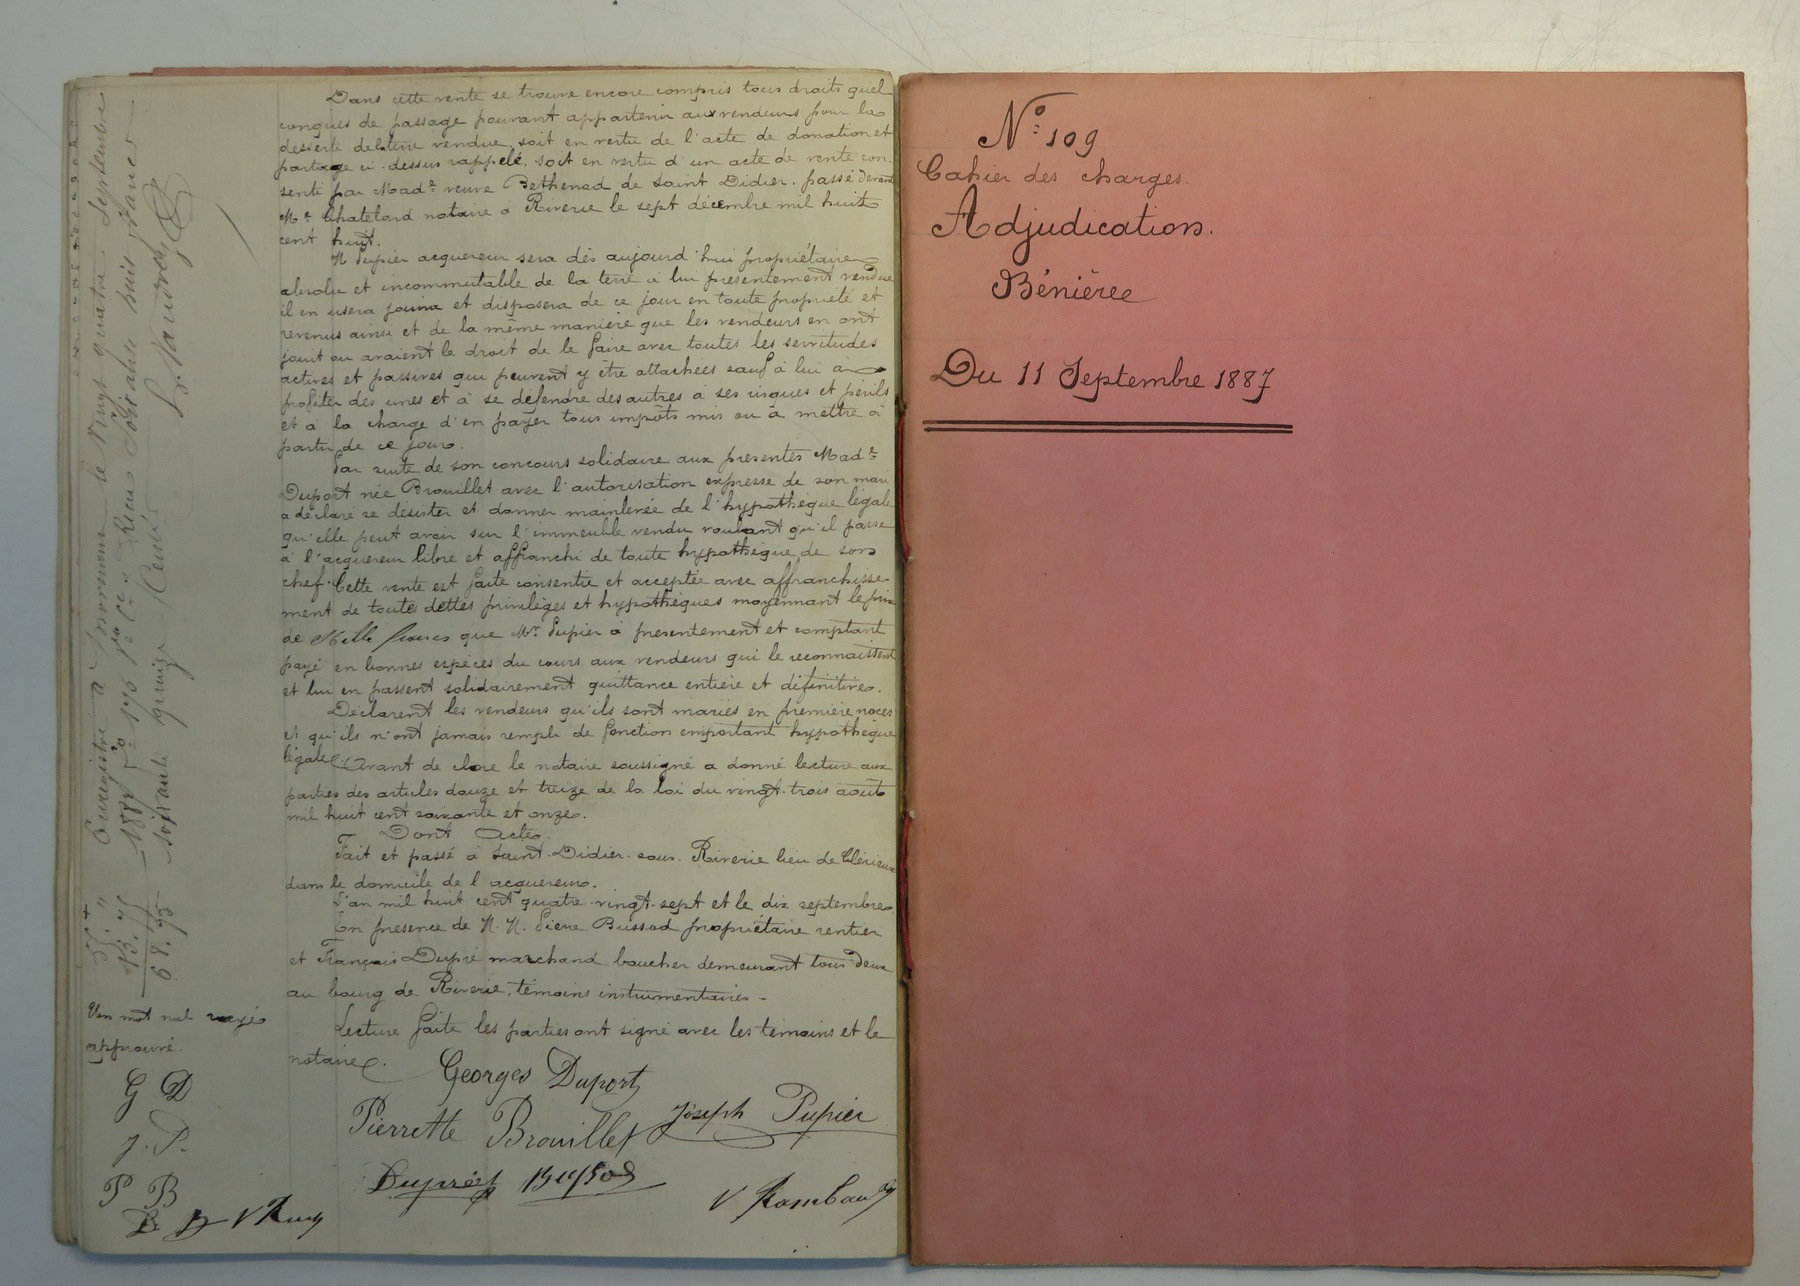 Dans cette vente se trouve encore compris tous droits quel
conques de passage pouvant appartenir aux vendeurs pour la
desserte de la terre vendue, soit en vertu de l'acte de donation et
partage ci-dessus rappelé, soit en vertu d'un acte de vente con-
senti par Made veuve Bethenod de Saint Didier, passé devant
Me Chatelard notaire à Riverie le sept décembre mil huit
cent huit.
M Pupier acquereur sera dès aujourd'hui propriétaire
absolu et incommutable de la terre à lui presentement vendue
il en usera jouira et disposera de ce jour en toute propriété et
revenus ainsi et de la même manière que les vendeurs en ont
jouit ou avaient le droit de le faire avec toutes les servitudes
actives et passives qui peuvent y être attachées sauf à lui à
profiter des unes et à se défendre des autres à ses risques et périls
et à la charge d'en payer tous impôts mis ou à mettre à
partir de ce jour.
Par suite de son concours solidaire aux presentes Made
Duport née Brouillet avec l'autorisation expresse de son mari
a déclaré se désister et donner mainlevée de l'hypothèque légale
qu'elle peut avoir sur l'immeuble vendu voulant qu'il passe
à l'acquereur libre et affranchi de toute hypothèque de son
chef. Cette vente est faite consentie et acceptée avec affranchisse
ment de toutes dettes privilèges et hypothèques moyennant le prix
de Mille francs que Mr Pupier a presentement et comptant
payé en bonnes espèces du cours aux vendeurs qui le reconnaissent
et lui en passent solidairement quittance entière et définitive.
Déclarent les vendeurs qu'ils sont mariés en première noces
et qu'ils n'ont jamais rempli de fonction emportant hypothèque
légale. Avant de clore le notaire soussigné a donné lecture aux
parties des articles douze et treize de la loi du vingt-trois août
mil huit cent soixante et onze.
Dont Acte.
Fait et passé à Saint-Didier-sous-Riverie lieu de Clérieux
dans le domicile de l'acquereur.
L'an mil huit cent quatre-vingt-sept et le dix septembre
En presence de M. M. Pierre Bussod propriétaire rentier
et François Dupré marchand boucher demeurant tous deux
au bourg de Riverie, témoins instrumentaires -
Lecture faite les parties ont signé avec les témoins et le
notaire.
Georges Duport
Pierrette Brouillet Joseph Pupier
Dupré Bussod
V Rambaud
Enregistré à Mornant le Vingt quatre Septembre
1887 fo 176 Reçu Soixante huit francs
soixante quinze Centes
55. "
13.75
68.75
Un mot nul rayé
approuvé.
G D
J. P.
P B
No 109
Cahier des charges.
Adjudication.
Bénière
Du 11 Septembre 1887